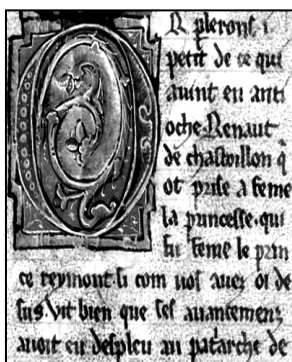 OR plerons i
petit de ce qui
auint en anti
oche. Renaut
de chastoillon q̃
ot prise a feme
la princesse. qui
fu feme le prin
ce reymont. si com uos auez oi de
sus. Vit bien que ses auancemenz
auoit eu despleu au patriarche de